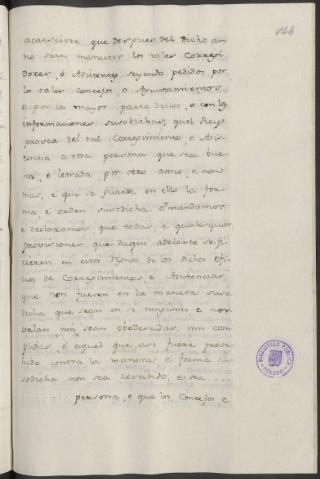 144
acaesciere, que despues del dicho año
no sean menester los tales Corregi
dores, o Asistentes seyendo pedidos por
los tales concejos, o Ayuntamientos
o por la mayor parte dellos, o con las
informaciones susodichas, quel Rey
provea del tal Corregimiento, e Asis
tencia a otra persona que sea bue
na, e letrada por otro año, e non
mas, e que se guarde en ello la for
ma e orden susodicha. E mandamos,
e declaramos que todas, e qualesquier
provisiones, que daqui adelante se fi
cieren en estos Reynos de los dichos Ofi
cios de Corregimientos e Asistencias,
que non fueren en la manera suso
dicha que sean en si ningunas e non
valan nin sean obedecidas, nin com
plidas, e aquel que asi fuere provei
do contra la manera, e forma su
sodicha non sea recevido, e sea .....
....... persona, e que los Concejos, e
BIBLIOTECA PUBLICA
TOLEDO